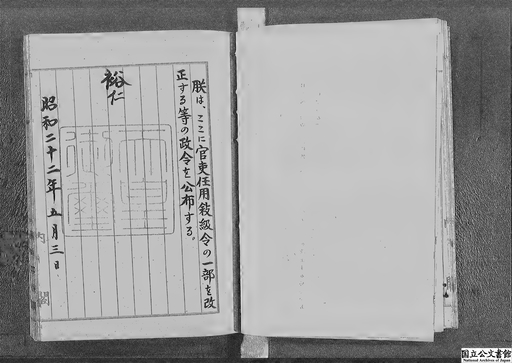 朕は、ここに官吏任用敍級令の一部を改
正する等の政令を公布する。
裕仁
昭和二十二年五月三日
内閣
国立公文書館
National Archives of Japan